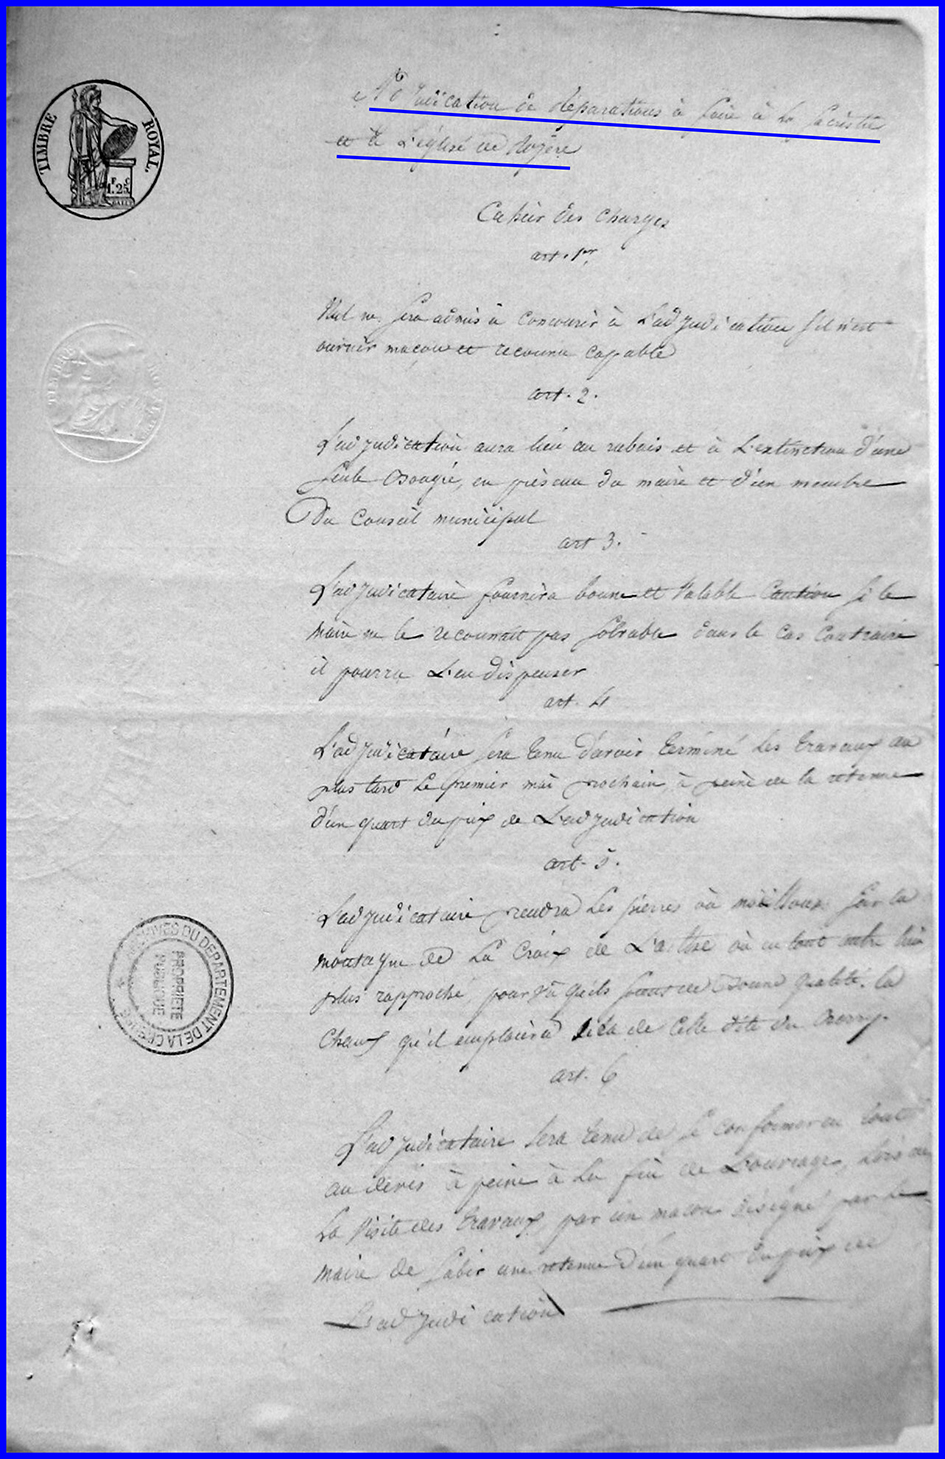 TIMBRE ROYAL
1F. 25C
Adjudication de réparations à faire à la sacristie
et à L'église de Royère
Cahier des charges
art. 1er
Nul ne sera admis à concourir à L'adjudication s'il n'est
ouvrier maçon et reconnu capable
art. 2.
L'adjudication aura lieu au rabais et à L'extinction d'une
seule Bougie, en présence du maire et d'un membre
Du Conseil municipal
art 3.
L'adjudicataire fournira bonne et valable Caution si le
maire ne le reconnait pas solvable dans le cas Contraire
il pourra L'en dispenser
art. 4
L'adjudicataire sera tenu d'avoir terminé Les travaux au
plus tard Le premier mai prochain, à peine de la retenue
d'un quart du prix de L'adjudication
art. 5.
L'adjudicataire prendra Les pierres où moillons sur la
montagne de La Croix de où en tout autre lieu
plus rapproché, pourvû qu'ils soient de Bonne qualité. la
Chaux qu'il emploiera sera de Celle dite du Berry.
art. 6
L'adjudicataire sera tenu de se conformer en tout
au devis à peine à La fin de L'ouvrage, Lors de
La visite des travaux, par un maçon désigné par Le
maire de subir une retenue d'un quart du prix de
L'adjudication
ARCHIVES DU DEPARTEMENT DE LA CREUSE
PROPRIETE
PUBLIQUE